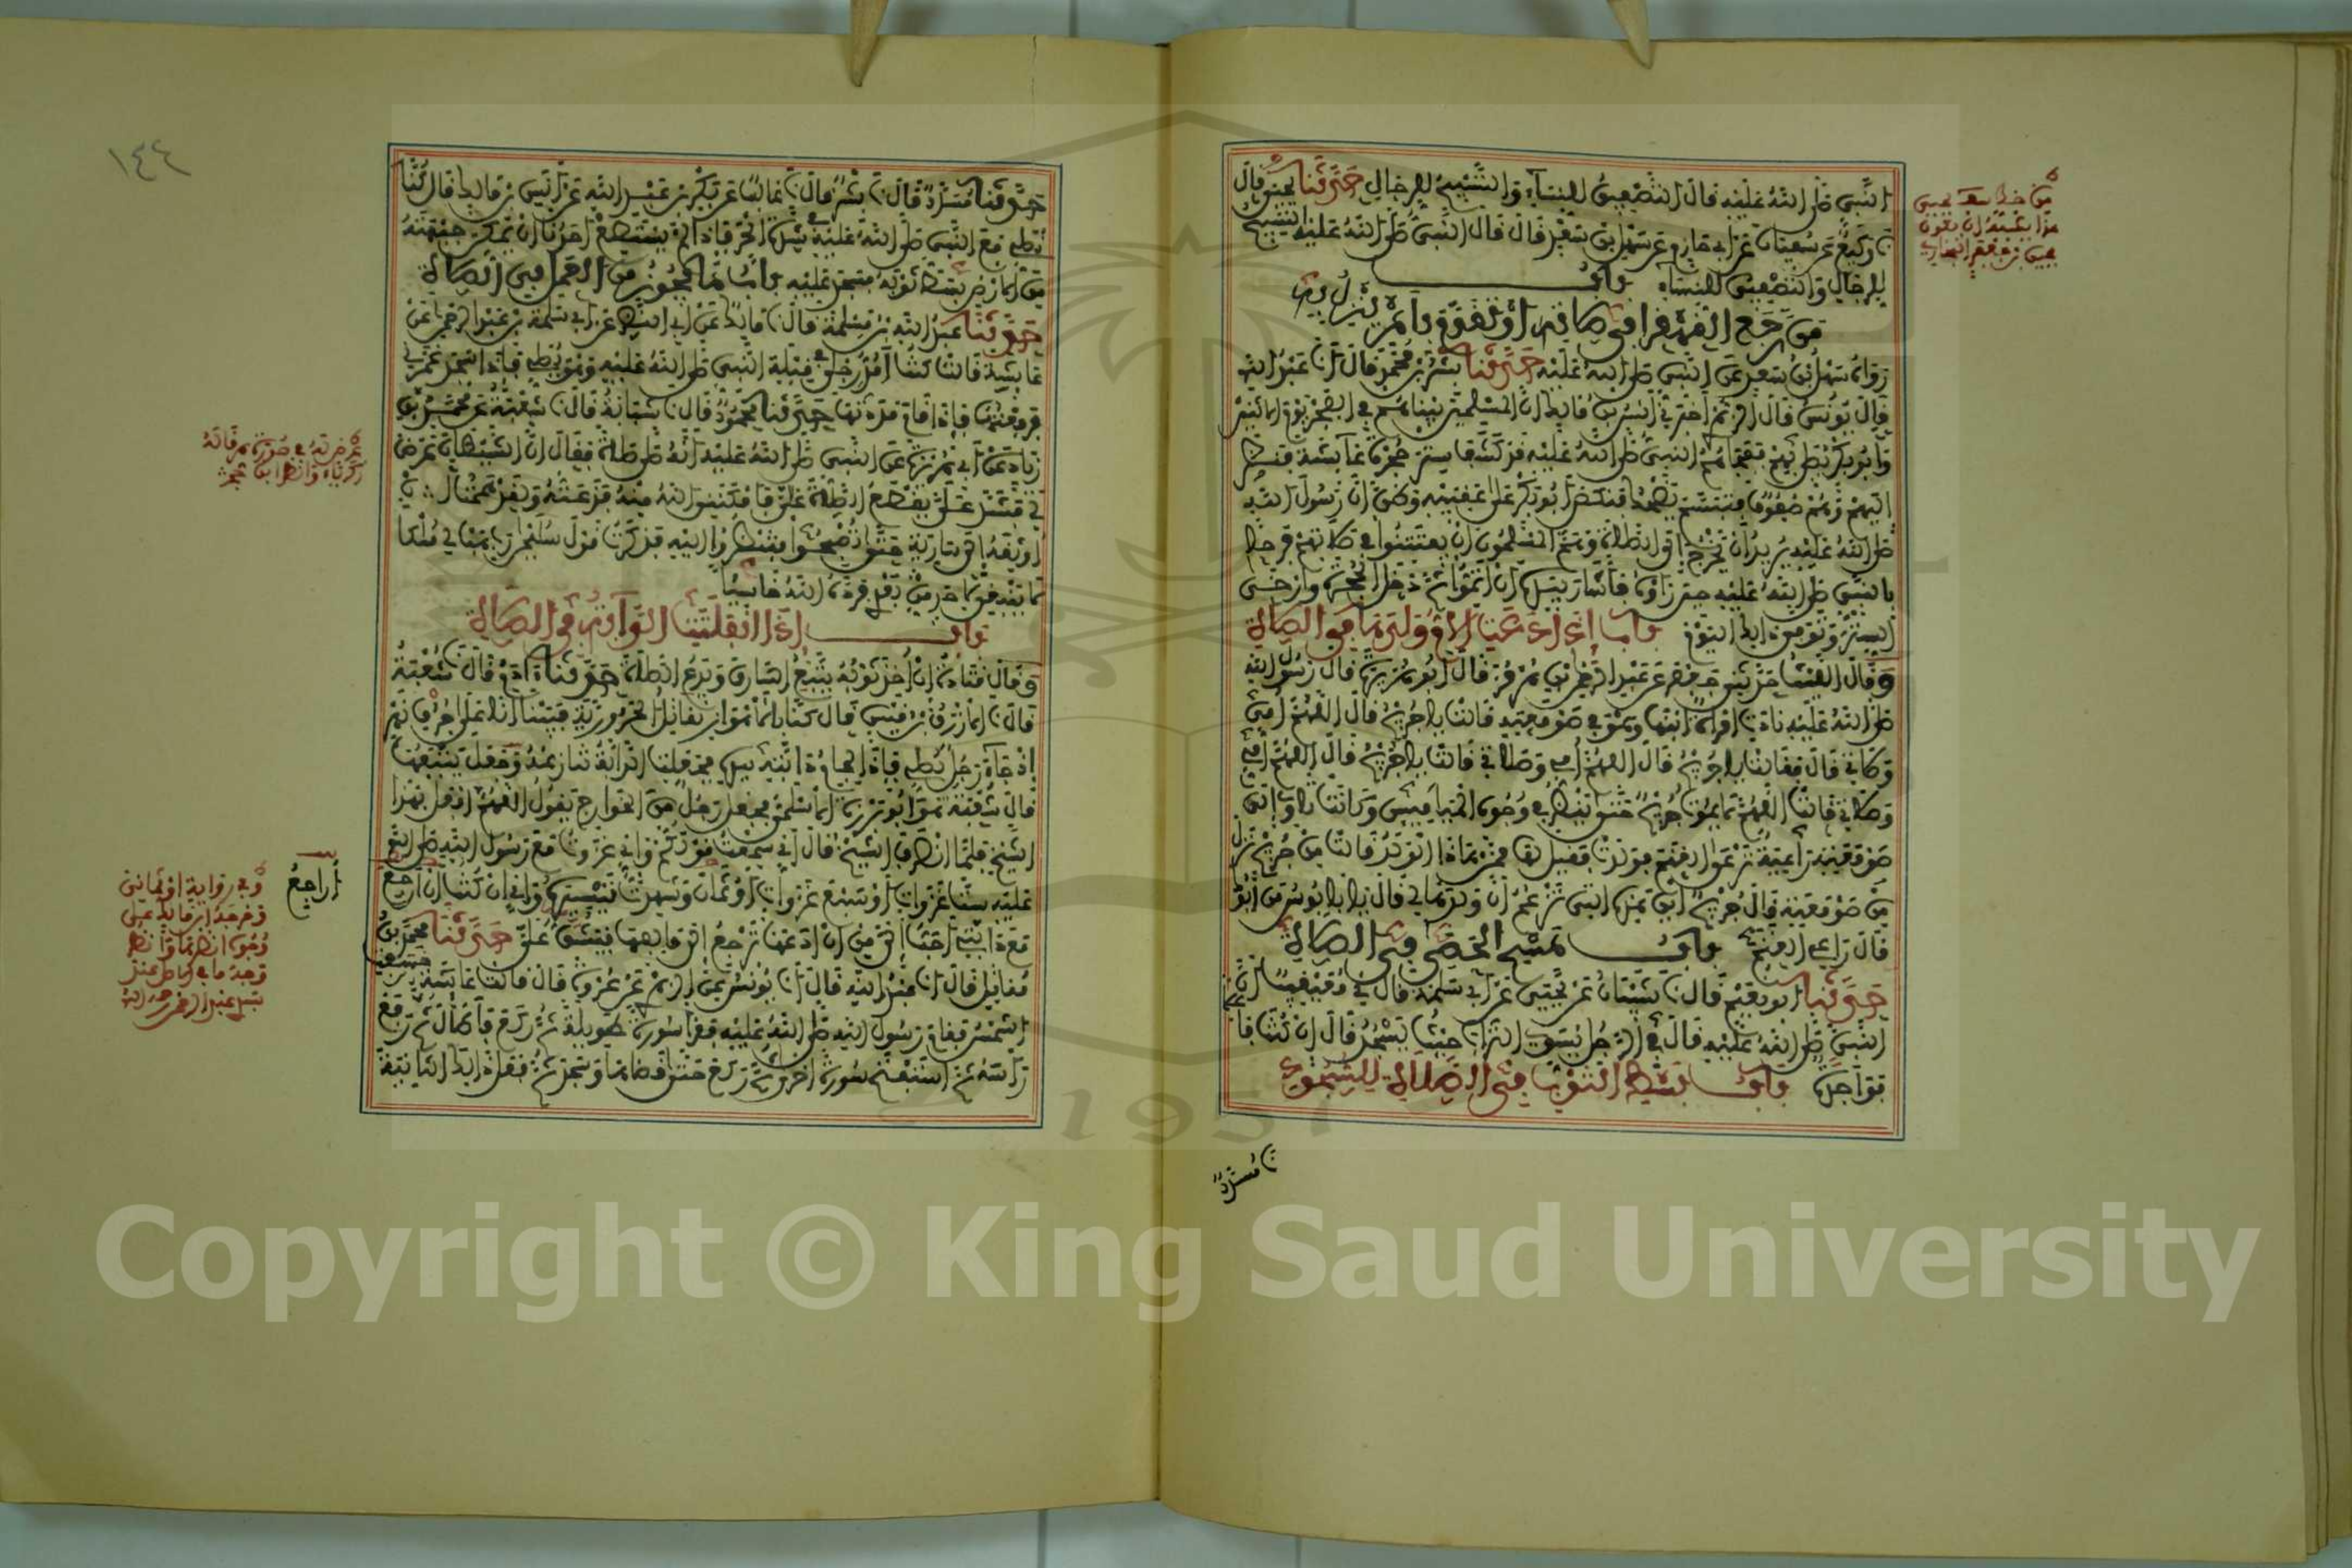 النبي صلى الله عليه قال التصفيق للنساء والتسبيح للرجال حدثنا يحيى قال
نا وكيع عن سفيان عن ابي حازم عن سهل بن سعد قال قال النبي صلى الله عليه التسبيح
للرجال والتصفيق للنساء باب
من رجع القهقرا في صلاته او تقدم بامر ينزل به
رواه سهل بن سعد عن النبي صلى الله عليه حدثنا بشر بن محمد قال انا عبد الله
قال يونس قال الزهري اخبرني انس بن مالك ان المسلمين بيناهم في الفجر يوم الاثنين
وابو بكر يصلي بهم ففجاهم النبي صلى الله عليه قد كشف ستر حجرة عائشة فنظر
اليهم وهم صفوف فتبسم يضحك فنكص ابو بكر على عقبيه وظن ان رسول الله
صلى الله عليه يريد ان يخرج الى الصلاة وهم المسلمون ان يفتتنوا في صلاتهم فرحا
بالنبي صلى الله عليه حين راوه فاشار بيده ان اتموا ثم دخل الحجرة وارخى
الستر وتوفي ذلك اليوم باب اذا دعت الام ولدها في الصلاة
وقال الليث حدثني جعفر عن عبد الرحمن بن هرمز قال ابو هريرة قال رسول الله
صلى الله عليه نادت امراة ابنها وهو في صومعته قالت يا جريج قال اللهم امي
وصلاتي قال فقالت يا جريج قال اللهم امي وصلاتي قالت يا جريج قال اللهم امي
وصلاتي قالت اللهم لا يموت جريج حتى ينظر في وجوه المياميس وكانت تاوي الى
صومعته راعية ترعى الغنم فولدت فقيل لها ممن هذا الولد قالت من جريج نزل
من صومعته قال جريج اين هذه التي تزعم ان ولدها لي قال يا بابوس من ابوك
قال راعي الغنم باب مسح الحصى في الصلاة
حدثنا ابو نعيم قال نا شيبان عن يحيى عن ابي سلمة قال ني معيقيب ان
النبي صلى الله عليه قال في الرجل يسوي التراب حيث يسجد قال ان كنت فاعلا
فواحدة باب بسط الثوب في الصلاة للسجود
نا مسدد
حدثنا مسدد قال نا بشر قال نا غالب عن بكر بن عبد الله عن انس بن مالك قال كنا
نصلي مع النبي صلى الله عليه في شدة الحر فاذا لم يستطع احدنا ان يمكن جبهته
من الارض بسط ثوبه فسجد عليه باب ما يجوز من العمل في الصلاة
حدثنا عبد الله بن مسلمة قال نا مالك عن ابي النضر عن ابي سلمة بن عبد الرحمن عن
عائشة قالت كنت امد رجلي في قبلة النبي صلى الله عليه وهو يصلي فاذا سجد غمزني
فرفعتها فاذا قام مددتها حدثنا محمود قال نا شبابة قال نا شعبة عن محمد بن
زياد عن ابي هريرة عن النبي صلى الله عليه انه صلى صلاة فقال ان الشيطان عرض
لي فشد علي يقطع الصلاة علي فامكنني الله منه فذعته ولقد هممت ان
اوثقه الى سارية حتى تصبحوا فتنظروا اليه فذكرت قول سليمن رب هب لي ملكا
لا ينبغي لاحد من بعدي فرده الله خاسيا
باب اذا انفلتت الدابة في الصلاة
وقال قتادة ان اخذ ثوبه يتبع السارق ويدع الصلاة حدثنا ادم قال نا شعبة
قال نا الازرق بن قيس قال كنا بالاهواز نقاتل الحرورية فبينا انا على جرف نهر
اذ جاء رجل يصلي فاذا لجام دابته بيده فجعلت الدابة تنازعه وجعل يتبعها
قال شعبة هو ابو برزة الاسلمي فجعل رجل من الخوارج يقول اللهم افعل بهذا
الشيخ فلما انصرف الشيخ قال اني سمعت قولكم واني غزوت مع رسول الله صلى الله
عليه ست غزوات او سبع غزوات او ثمان وشهدت تيسيره واني ان كنت ان ارجع
مع دابتي احب الي من ان ادعها ترجع الى مالفها فيشق علي حدثنا محمد بن
مقاتل قال انا عبد الله قال انا يونس عن الزهري عن عروة قال قالت عائشة خسفت
الشمس فقام رسول الله صلى الله عليه فقرا سورة طويلة ثم ركع فاطال ثم رفع
راسه ثم استفتح سورة اخرى ثم ركع حتى قضاها وسجد ثم فعل ذلك في الثانية
اراجع
١٤٤
Copyright © King Saud University
1957